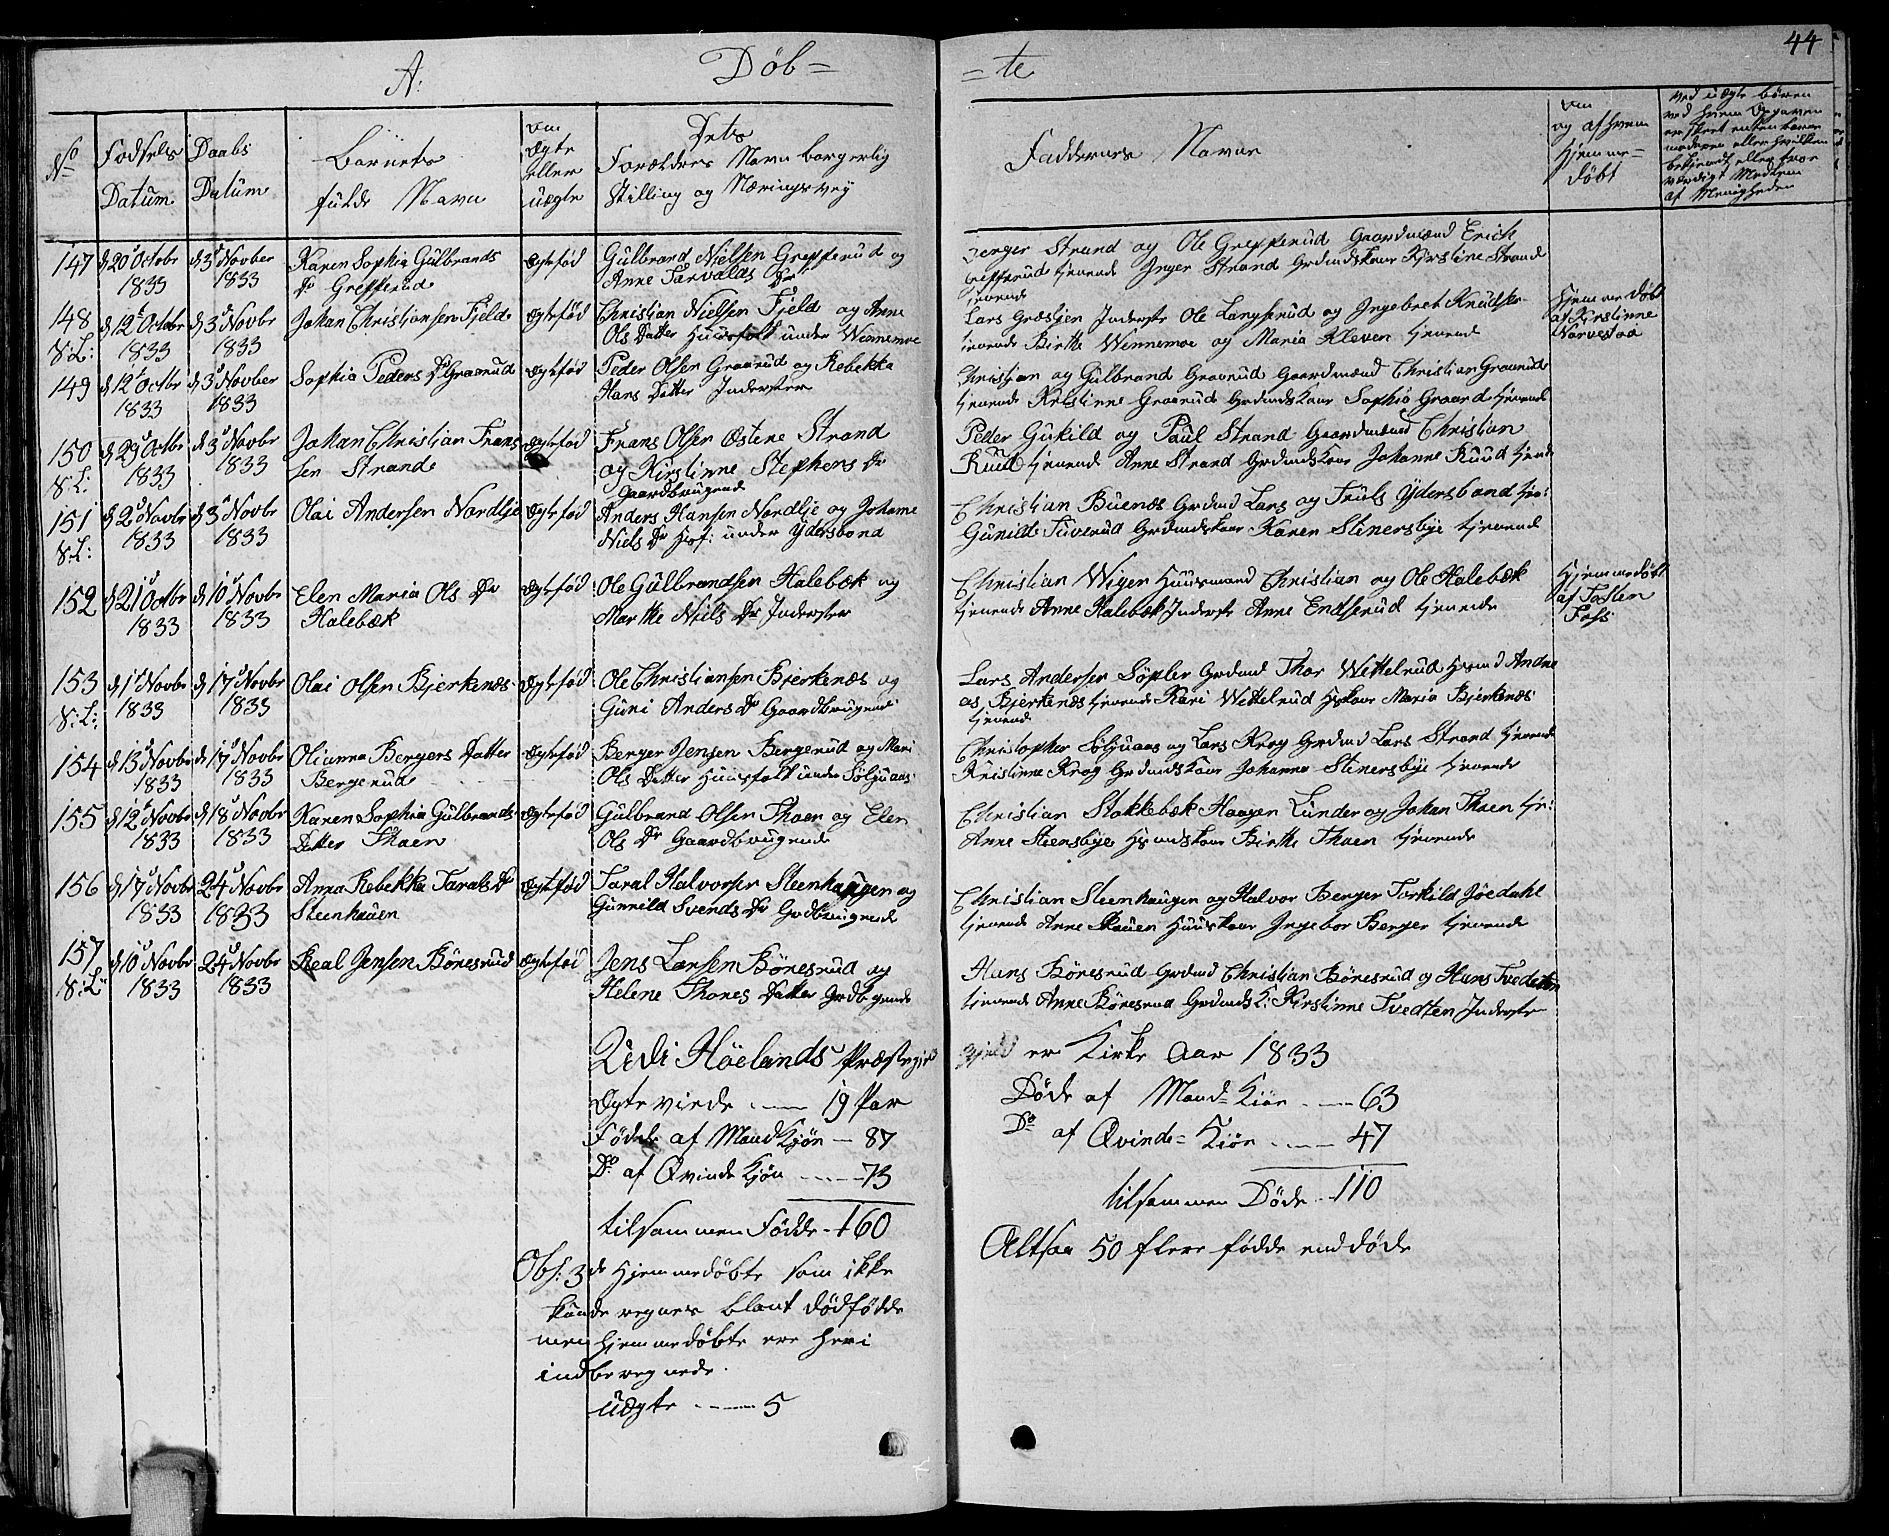 44
A:
Døb=
=te
No
Fødsels
Datum
Daabs
Datum
Barnets
fulde Navn
om
Ægte
eller
uægte
Dets
Forældres Navn borgerlig
Stilling og Næringsvey
Faddernes Navne
om
og af hvem
hjemme=
døbt
ved uægte børn
af Menigheden
147
d 20 Octobr
1833
d 3 Novber
1833
Karen Sophia Gulbrands
Dr Grefferud
ægtefød
Gulbrand Nielsen Grefferud og
Anne Tarvalds Dr
Strand og Ole Grefferud Gaardmænd Erich
Grefferud tjenende Inger Strand Grdmdskone Kirstine Strand
tjenende
148
N:L:
d 12 Octobr
1833
d 3 Novbr
1833
Johan Christiansen Fjeld
ægtefød
Christian Nielsen Fjeld og Anne
Ols Datter Huusfolk under Wennemoe
Lars Græstjen Inderste Ole Langserud og Ingebret
tjenende Birthe Wennemoe og Maria Kleven tjenende
Hjemmedøbt
af Kirstinne
149
d 12 Octbr
1833
d 3 Novber
1833
Sophia Peders Dr Graarud
ægtefød
Peder Olsen Graarud og Rebekka
Hans Datter Inderster
Christian og Gulbrand Graarud Gaardmænd Christian Graarud
tjenende Kristinne Graarud Grdmdskone Sophia Graarud tjenende
150
N:L:
d 29 Octbr
1833
d 3 Novbr
1833
Johan Christian Frans
sen Strand
ægtefød
Frans Olsen Østene Strand
og Kirstinne Stephens Dr
Gaardbrugende
Peder Gukild og Paul Strand Gaardmænd Christian
Ruud tjenende Anne Strand Grdmdskone Johanne Ruud tjende
151
N:L:
d 2 Novbr
1833
d 3 Novbr
1833
Olai Andersen Nordlje
ægtefød
Anders Hansen Nordlje og Johanne
Niels Dr Hsf: under Ydersbond
Christian Buenæs Grdmd Lars og Truls Ydersbond tje:
Gunild Tuverud Grdmdskone Karen Stenersbye tjenende
152
d 21 Octbr
1833
d 10 Novbr
1833
Elen Maria Ols Dr
Halebæk
ægtefød
Ole Gulbrandsen Halebæk og
Marthe Niels Dr Inderster
Christian Wiger Huusmand Christian og Ole Halebæk
tjenende Anne Halebæk Inderste Anne Endserud tjenende
Hjemmedøbt
af Tosten
Foss
153
N:L:
d 1 Novbr
1833
d 17 Novbr
1833
Olai Olsen Bjerkenæs
ægtefød
Ole Christiansen Bjerkenæs og
Guri Anders Dr Gaardbrugende
Lars Andersen Søpler Grdmd Thor Wettelrud Hsmd Andre
as Bjerkenæs tjenende Kari Wettelrud Hskone Maria Bjerkenæs
tjenende
154
d 13 Novbr
1833
d 17 Novbr
1833
Olianna Bergers Datter
Bergerud
ægtefød
Berger Jensen Bergerud og Mari
Ols Datter Huusfolk under Søljuaas
Christopher Søljuaas og Lars Krog Grdmd Lars Strand tjenende
Kristinne Krog Grdmdskone Johanne Stenersbye tjenende
155
d 12 Novbr
1833
d 18 Novbr
1833
Karen Sophia Gulbrands
Datter Thoen
ægtefød
Gulbrand Olsen Thoen og Elen
Ols Dr Gaardbrugende
Christian Stokkebæk Haagen Lunder og Johan Thoen tje:
Anne Steensbye Hsmdskone Birthe Thoen tjenende
156
d 17 Novbr
1833
24 Novbr
1833
Anna Rebekka Tarals Dr
Steenhauen
ægtefød
Taral Halvorsen Steenhaugen og
Gunnild Svends Dr Grdbrugende
Christian Steenhaugen og Halvor Berger Torkild Joedahl
tjenende Anne Skauen Huuskone Ingebor Berger tjenende
157
N:L:
d 10 Novbr
1833
24 Novbr
1833
Real Jensen Bönesrud
ægtefød
Jens Larsen Bönesrud og
Helene Thores Datter Grdbgende
Hans Bönesrud Grdmd Christian Bönesrud og Hans Tvedten
tjenende Anne Bönesrud Grdmdsk: Kirstinne Tvedten Inderste
Udi Höelands Præstegield er Kirke Aar 1833
Ægteviede ---- 19 Par
Fødde af MandKjøn -- 87
Do af QvindeKjøn ---- 73
tilsammen Fødde - 160
Døde af Mand=Kiøn ---- 63
Do af Qvinde=Kiøn ---- 47
tilsammen Døde - 110
Altsaa 50 flere fødde end døde
Obs: 3de Hjemmedøbte som ikke
kunde regnes blant dødfødde
men hjemmedøbte ere heri
indberegnede.
uægte ---- 5